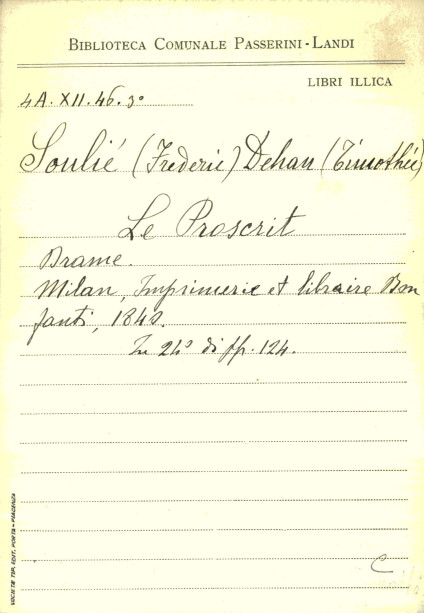 BIBLIOTECA COMUNALE PASSERINI-LANDI
LIBRI ILLICA
4A. XII. 46. 3º
Soulié (Frederic) Dehan (Timothée)
Le Proscrit
Drame.
Milan, Imprimerie et libraire Bon
fanti, 1840.
In 24º di pp. 124.
C
SOCIETÀ TIP. EDIT. PORTA - PIACENZA